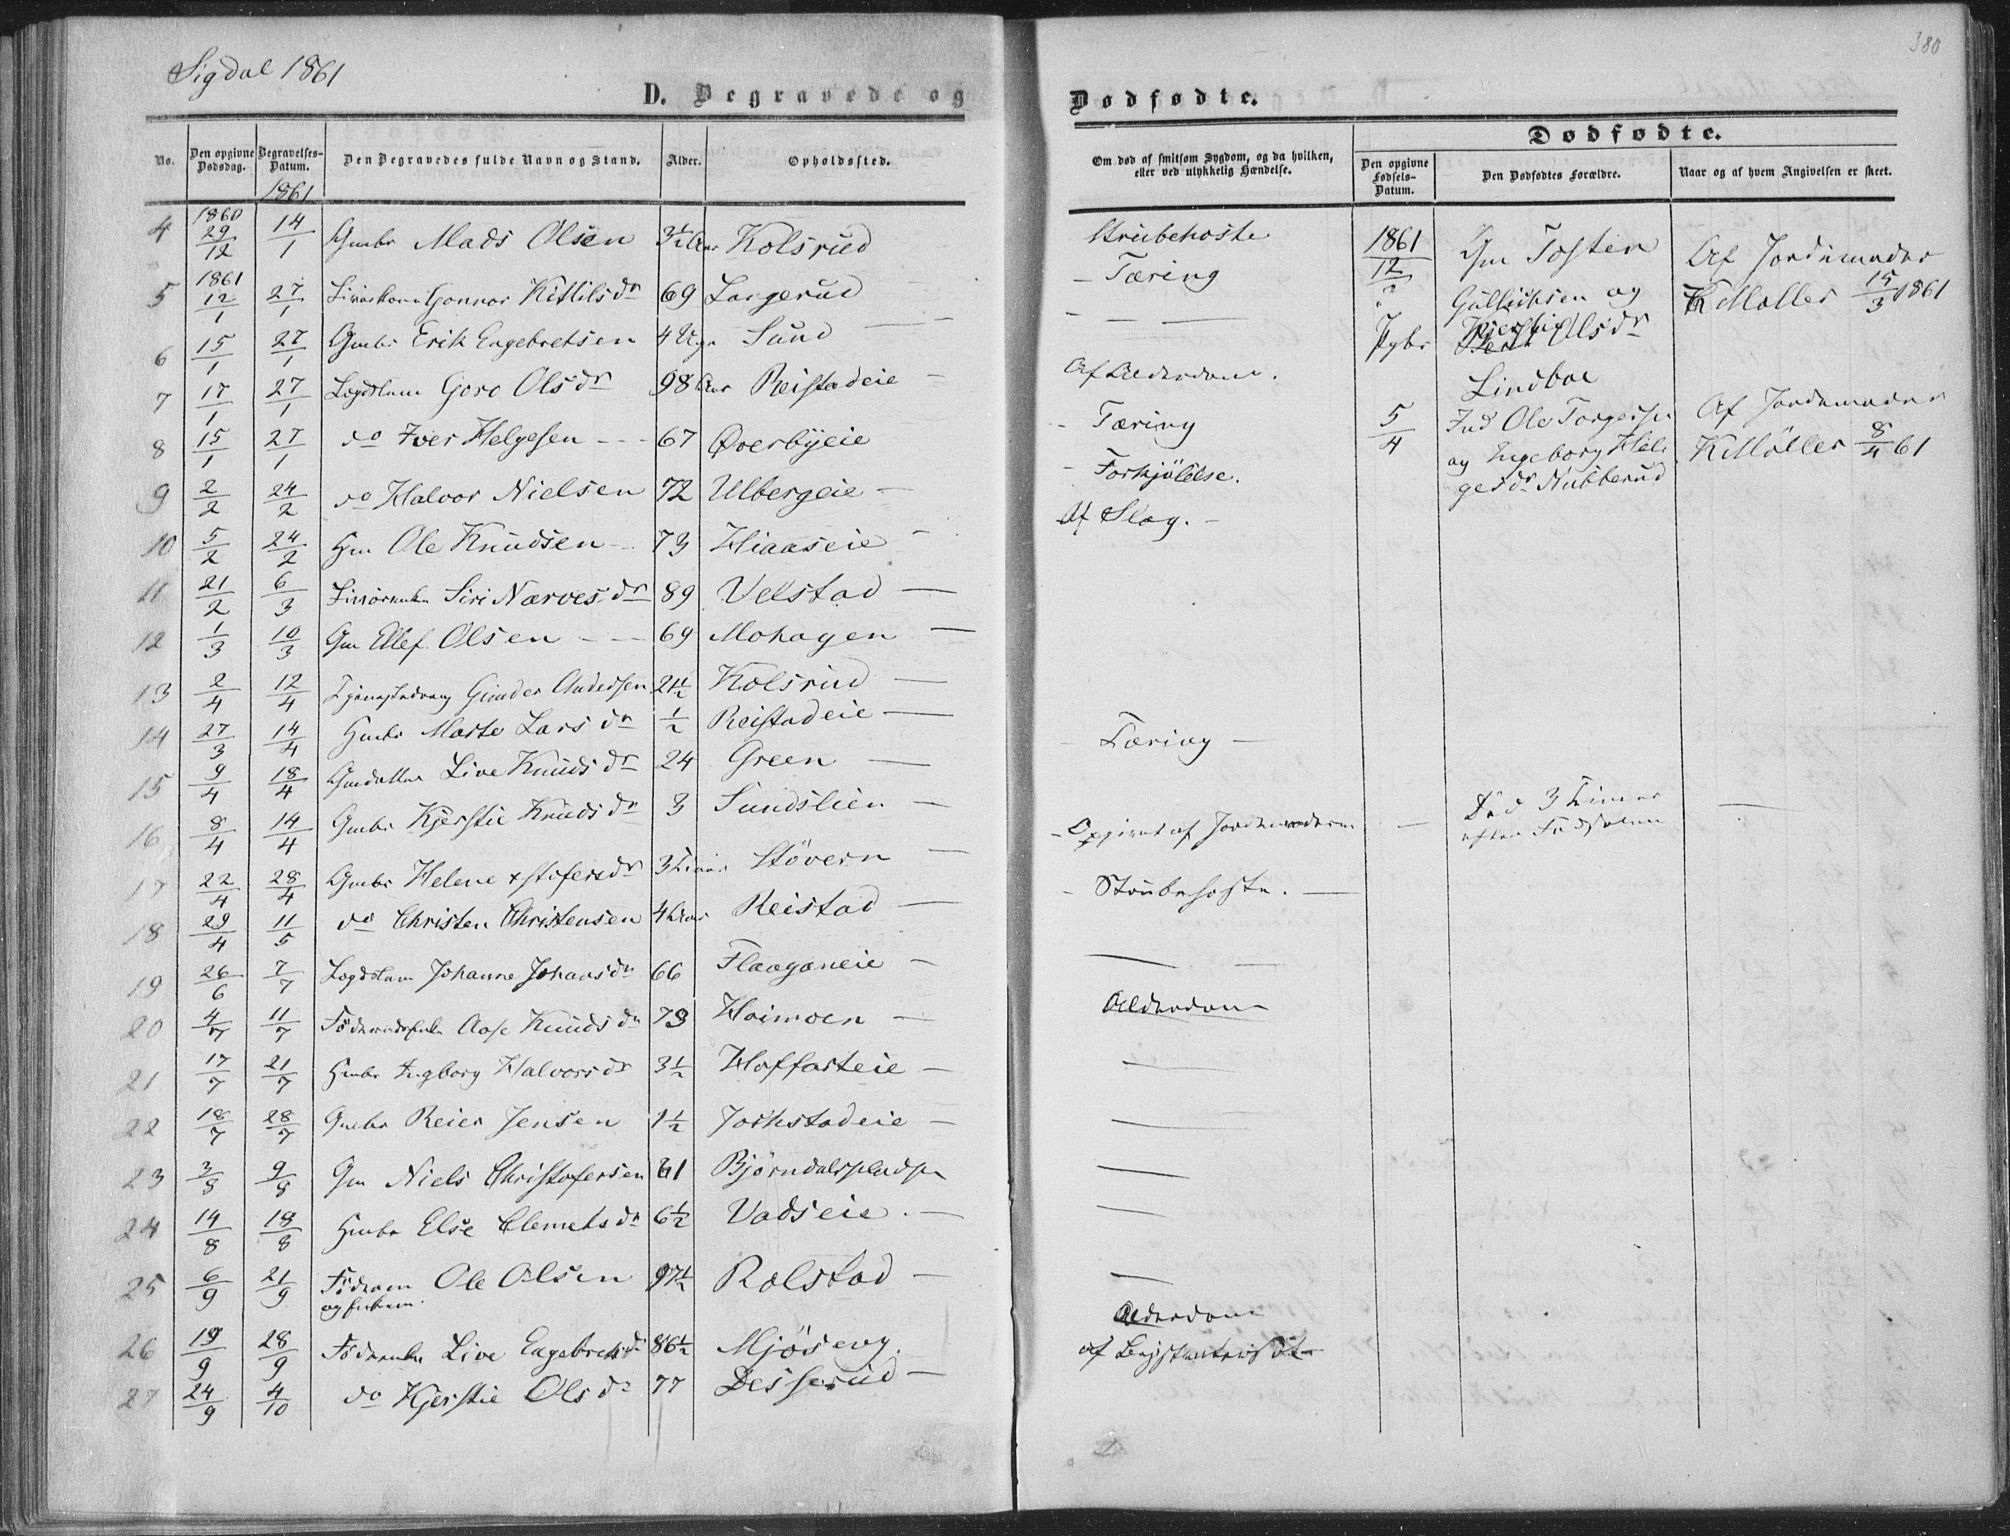 380
Sigdal 1861
D. Begravede og
Dødfødte.
Dødfødte.
No.
Den opgivne Dødsdag.
Begravelses-Datum.
Den Begravedes fulde Navn og Stand.
Alder.
Opholdssted.
Om død af smitsom Sygdom, og da hvilken, eller ved ulykkelig Hændelse.
Den opgivne Fødsels-Datum.
Den Dødfødtes Forældre.
Naar og af hvem Angivelsen er skeet.
1861
4 1860 29/12 14/1 Gmbr Mads Olsen 3½ Aar Kolsrud Strubehoste
5 1861 12/1 27/1 Gunnor Kittilsdr 69 Langerud - Tæring
6 15/1 27/1 Gmbr Erik Engebretsen 4 Sund
7 17/1 27/1 Lægdslem Goro Olsdr 98 Aar Reistadeie Af Alderdom.
8 15/1 27/1 do Iver Helgesen 67 Øverbyeie - Tæring
9 2/2 24/2 do Halvor Nielsen 72 Ulbergeie - Forkjölelse.
10 5/2 24/2 Hm Ole Knudsen 73 Hiaaseie Af Slag.
11 21/2 6/3 Siri Narvesdr 89 Velstad
12 1/3 10/3 Gm Ellef Olsen 69 Mohagen
13 2/4 12/4 Gunder Andersen 21½ Kolsrud
14 27/3 14/4 Hmbr Marte Larsdr ½ Reistadeie - Tæring
15 9/4 18/4 Gmdatter Live Knudsdr 24 Green
16 8/4 14/4 Gmbr Kjerstie Knudsdr 3 Sundslien - Opgivet af Jordemoderen Død 3 Timer efter Fødselen
17 22/4 28/4 Gmbr Helene xstofersdr 3 Støvern - Strubehoste.
18 29/4 11/5 do Christen Christensen 4 Reistad
19 26/6 7/7 Lægdslem Johanne Johansdr 66 Flaaganeie
20 4/7 11/7 Aase Knudsdr 73 Haimoen Alderdom
21 17/7 21/7 Hmbr Ingborg Halvorsdr 3½ Hoffarteie
22 18/7 28/7 Gmbr Reier Jensen 1½ Jokstadeie
23 3/8 9/8 Gm Niels Christofersen 61 Bjørndalspladsen
24 14/8 18/8 Hmbr Else Clemetsdr 6½ Vadseie
25 6/9 21/9 Föderm Ole Olsen 97½ Rolstad
26 19/9 28/9 Live Engebretsdr 86½ Mjöseng Alderdom
27 24/9 4/10 do Kjerstie Olsdr 77 Desserud af
1861 12/2
Gm Tosten
Gulliksen og
Olsdr
Lindboe
Af Jordemoder
K Møller 15/3 1861
5/4
Ind Ole Torgersen
og Ingeborg Hel-
gesdr Nubberud
Af Jordemoder
K Møller 8/4 61